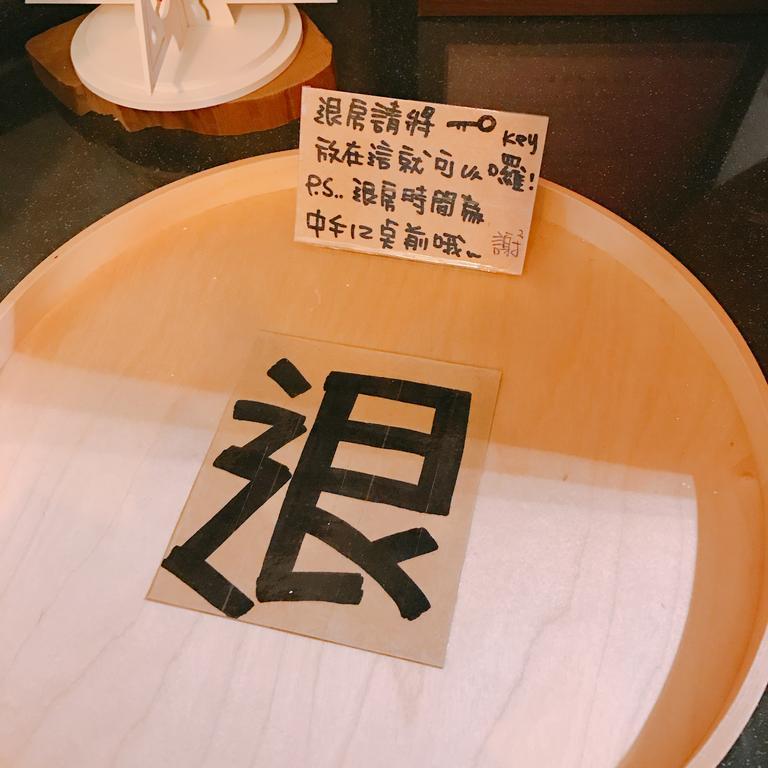 退房請將 key
放在這就可以囉!
P.S.. 退房時間為
中午12點前哦~ 謝2
退